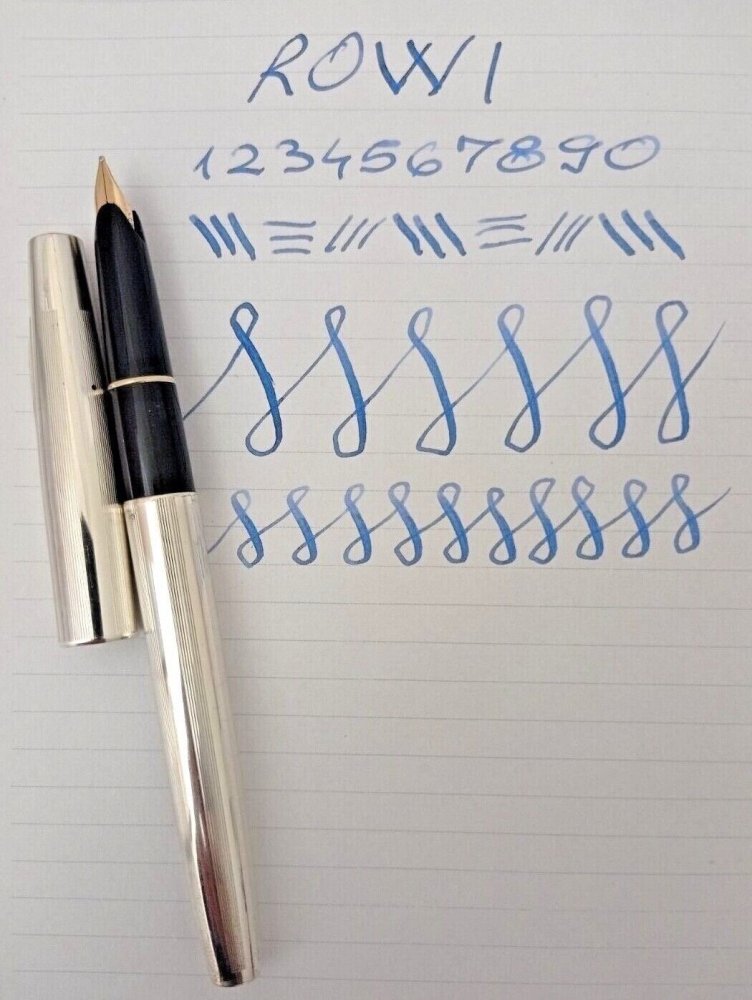 ROWI
1234567890